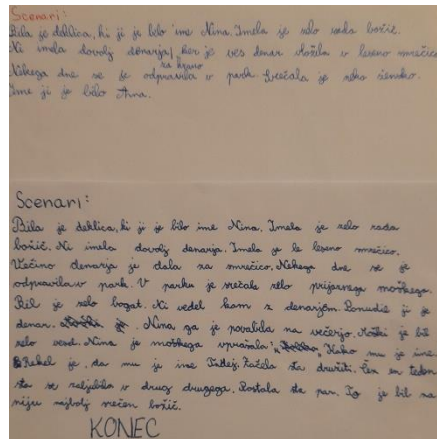 Scenari:
Bila je deklica, ki ji je bilo ime Nina. Imela je zelo rada božič.
Ni imela dovolj denarja, ker je ves denar vložila v leseno mrečico
za hrano
Nekega dne se je odpravila v park. Srečala je neko žensko.
Ime ji je bilo Anna.
Scenari:
Bila je deklica, ki ji je bilo ime Nina. Imela je zelo rada
božič. Ni imela dovolj denarja. Imela je le leseno mrečico.
Večino denarja je dala za mrečico. Nekega dne se je
odpravila v park. V parku je srečala zelo prijaznega moškega.
Bil je zelo bogat. Ni vedel kam z denarjem. Ponudil ji je
denar. Nina ga je povabila na večerjo. Moški je bil
zelo vesel. Nina je moškega vprašala: "Kako mu je ime.
Rekel je, da mu je ime Tadej. Začela sta družiti. Čez en teden
sta se zaljubila v drug drugega. Postala sta par. To je bil za
njiju najbolj srečen božič.
KONEC